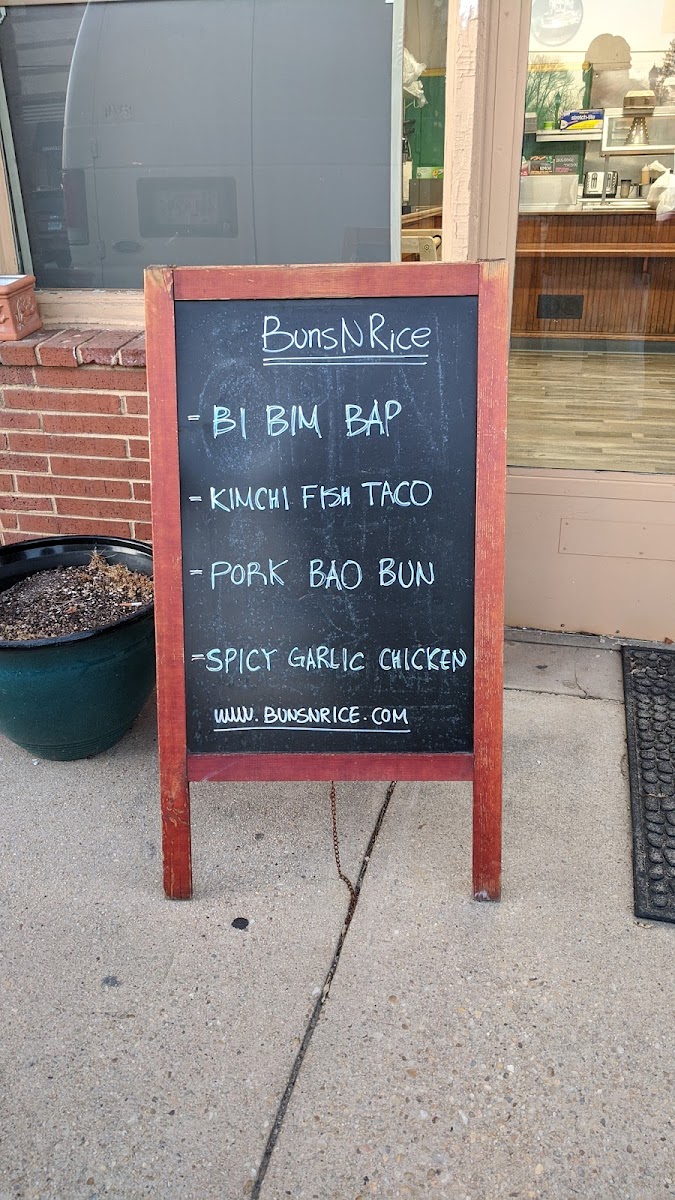 BunsNRice
= BI BIM BAP
= KIMCHI FISH TACO
= PORK BAO BUN
= SPICY GARLIC CHICKEN
WWW.BUNSNRICE.COM